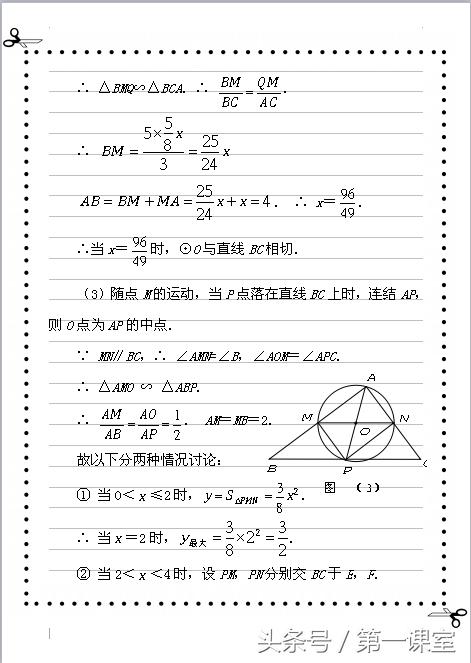 ∴ △BMQ∽△BCA. ∴ BM/BC=QM/AC.
∴ BM=(5×5/8x)/3=25/24x
AB=BM+MA=25/24x+x=4. ∴ x=96/49.
∴当x=96/49时,⊙O与直线BC相切.
(3)随点M的运动,当P点落在直线BC上时,连结AP,
则O点为AP的中点.
∵ MN∥BC,∴ ∠AMN=∠B,∠AOM=∠APC.
∴ △AMO ∽ △ABP.
∴ AM/AB=AO/AP=1/2. AM=MB=2.
故以下分两种情况讨论:
① 当0<x≤2时,y=S△PMN=3/8x².
∴ 当x=2时,y最大=3/8×2²=3/2.
② 当2<x<4时,设PM,PN分别交BC于E,F.
A
M
N
O
B
P
图 (3)
头条号/第一课堂